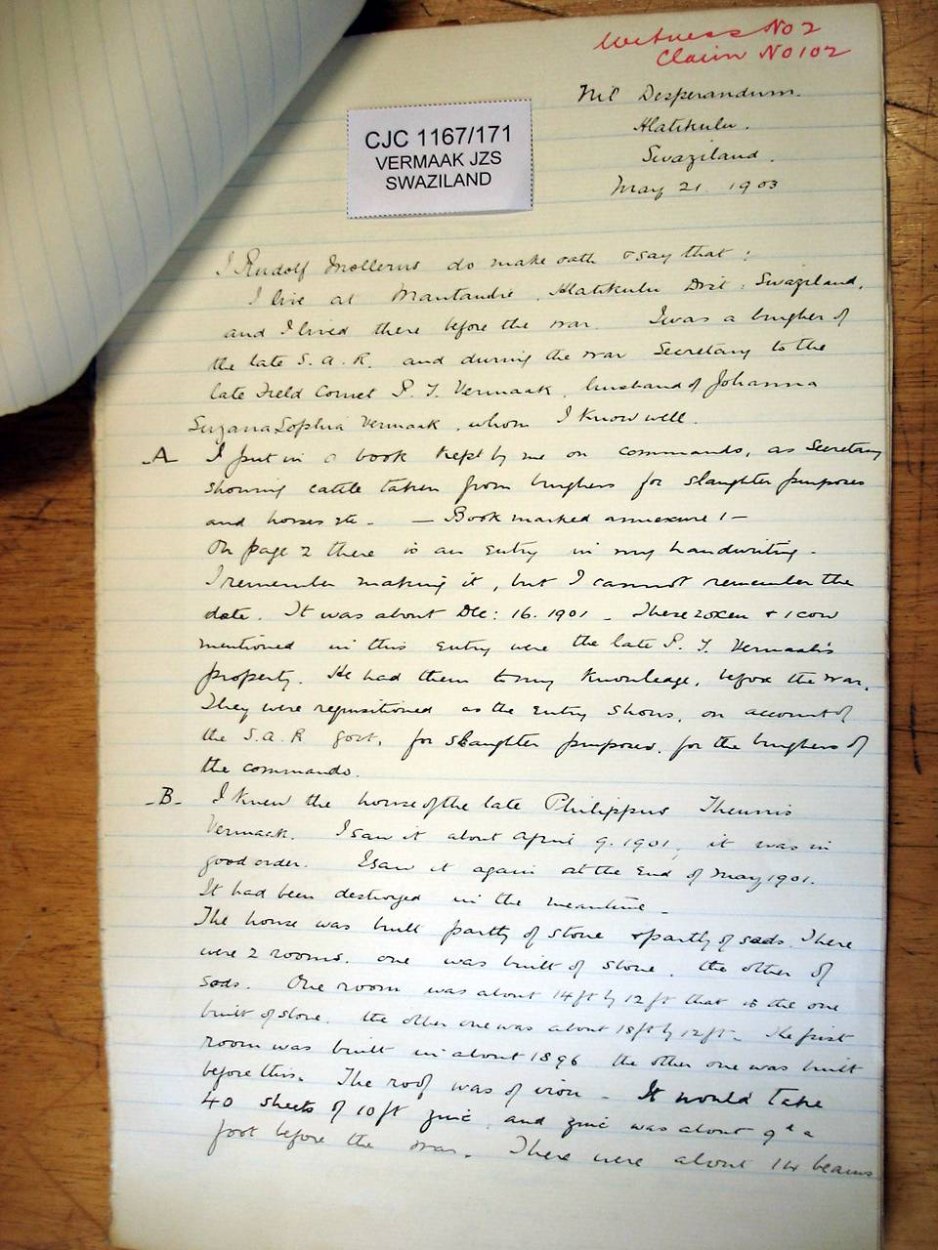 Witness No 2
Claim No 102
Nil Desperandum.
Hlatikulu.
Swaziland.
May 21 1903
CJC 1167/171
VERMAAK JZS
SWAZILAND
I Rudolf Mollerus do make oath & say that :
I live at Mantandie, Hlatikulu Dist : Swaziland,
and I lived there before the war. I was a burgher of
the late S.A.R. and during the war Secretary to the
late Field Cornet P. T. Vermaak, husband of Johanna
Suzana Sophia Vermaak, whom I know well.
-A- I put in a book kept by me on commando, as Secretary
showing cattle taken from burghers for slaughter purposes
and horses etc - — Book marked annexure 1 —
On page 2 there is an entry in my handwriting -
I remember making it, but I cannot remember the
date. It was about Dec: 16. 1901 - These 2 oxen & 1 cow
mentioned in this entry were the late P. T. Vermaak's
property. He had them to my knowledge, before the war.
They were requisitioned as the entry shows, on account of
the S.A.R govt, for slaughter purposes, for the burghers of
the commando.
-B- I knew the house of the late Philippus Theunis
Vermaak. I saw it about April 9. 1901, it was in
good order. I saw it again at the end of May 1901.
It had been destroyed in the meantime -
The house was built partly of stone & partly of sods. There
were 2 rooms. one was built of stone, the other of
sods. One room was about 14 ft by 12 ft that is the one
built of stone. the other one was about 18 ft by 12 ft - The first
room was built in about 1896 the other one was built
before this. The roof was of iron - It would take
40 sheets of 10 ft zinc, and zinc was about 9d a
foot before the war. There were about 14 beams